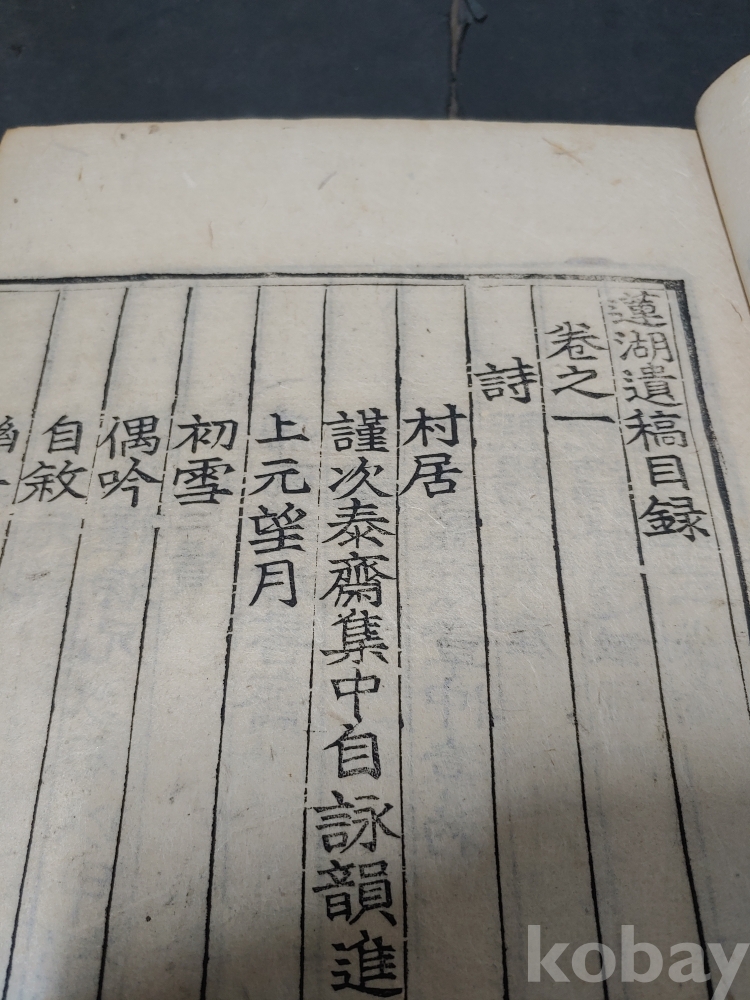 蓮湖遺稿目録
卷之一
詩
村居
謹次泰齋集中自詠韻進
上元望月
初雪
偶吟
自敘
kobay